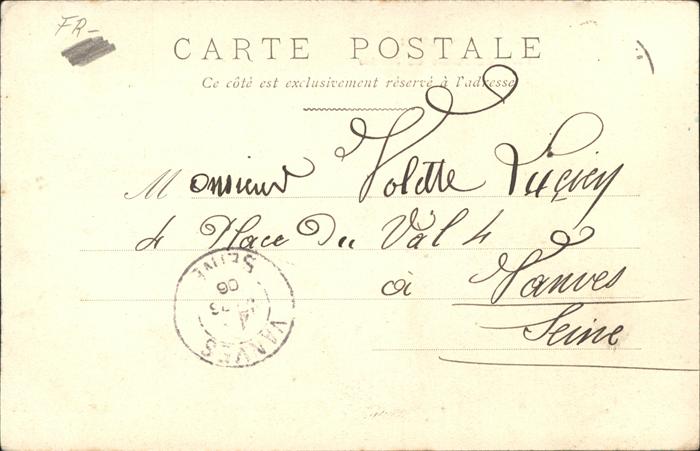 FR-
CARTE POSTALE
Ce côté est exclusivement réservé à l'adresse
Monsieur Volette Luçien
4 Place Du Val 4
à Vanves
Seine
VANVES
SEINE
06